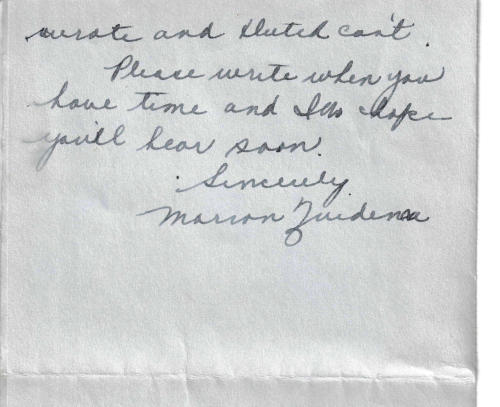 wrote and Dutch can't.
Please write when you
have time and I do hope
you'll hear soon.
Sincerely
Marion Zuidema